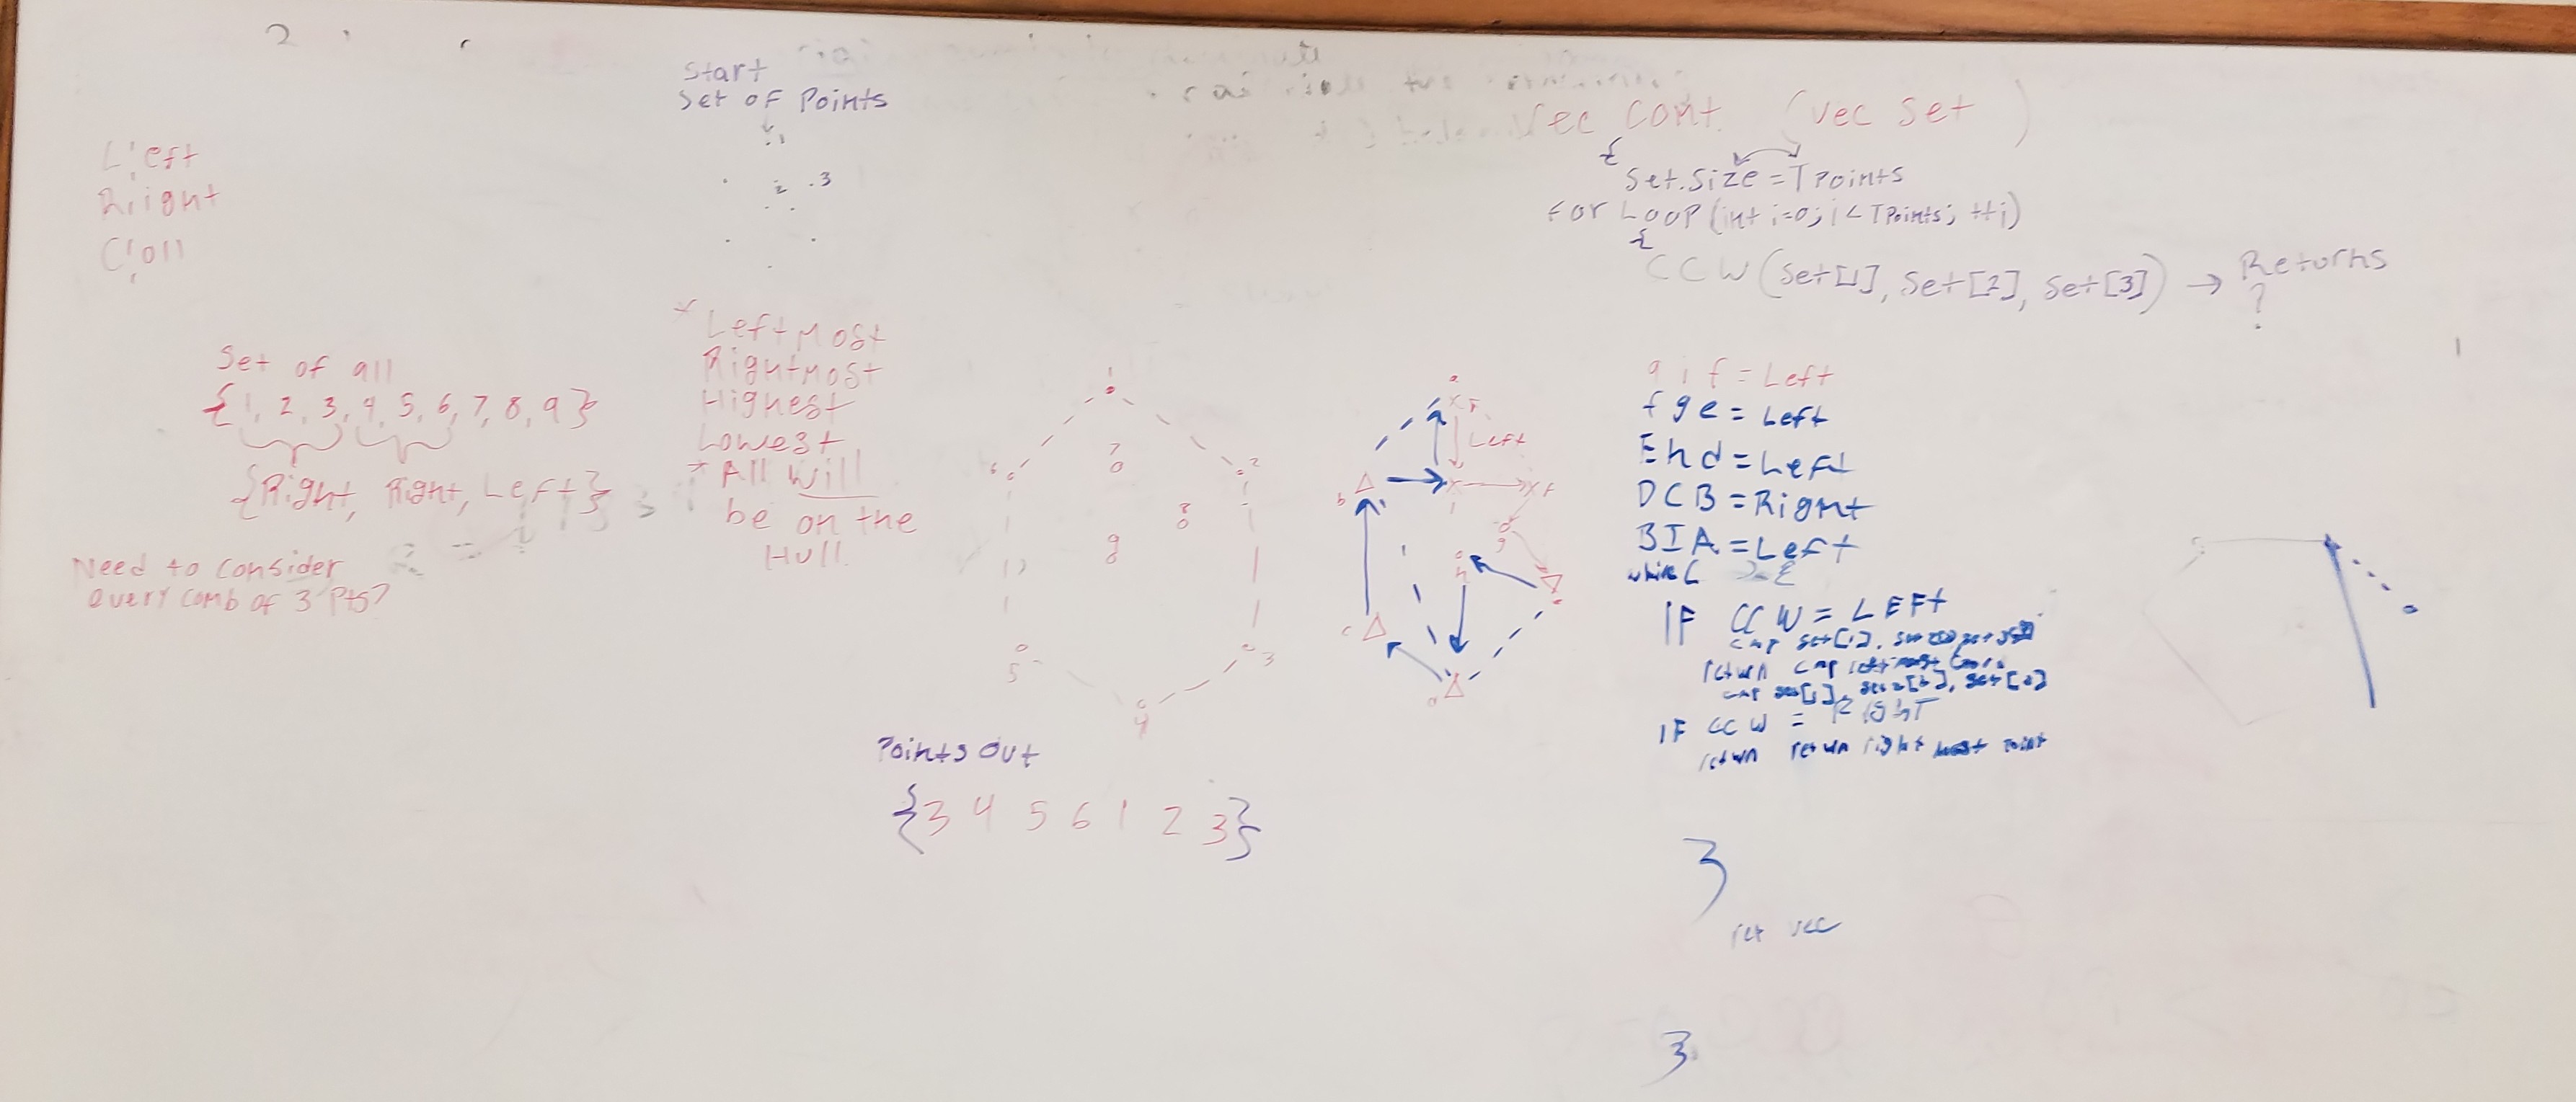 2
Start
Set of Points
1
2 .3
L eft
Right
Coll
Set of all
{1, 2, 3, 4, 5, 6, 7, 8, 9}
{Right, Right, Left}
Need to consider
every comb of 3 Pts?
* Leftmost
Rightmost
Highest
Lowest
* All will
be on the
Hull.
1
6
7
2
8
9
5
3
4
Points Out
{3 4 5 6 1 2 3}
a
Left
b
f
g
h
e
c
d
Vec Cont. (vec set )
{
Set.Size = TPoints
for Loop (int i=0; i < TPoints; ++i)
{
CCW (Set[1], Set[2], Set[3]) → Returns
?
a i f = Left
f g e = Left
E h d = Left
D C B = Right
B I A = Left
while (
IF CCW = LEFT
cmp set[1],
return cmp leftmost
cmp set[1], set[2], set[3]
IF CCW = RIGHT
return return right most point
}
ret vec
}